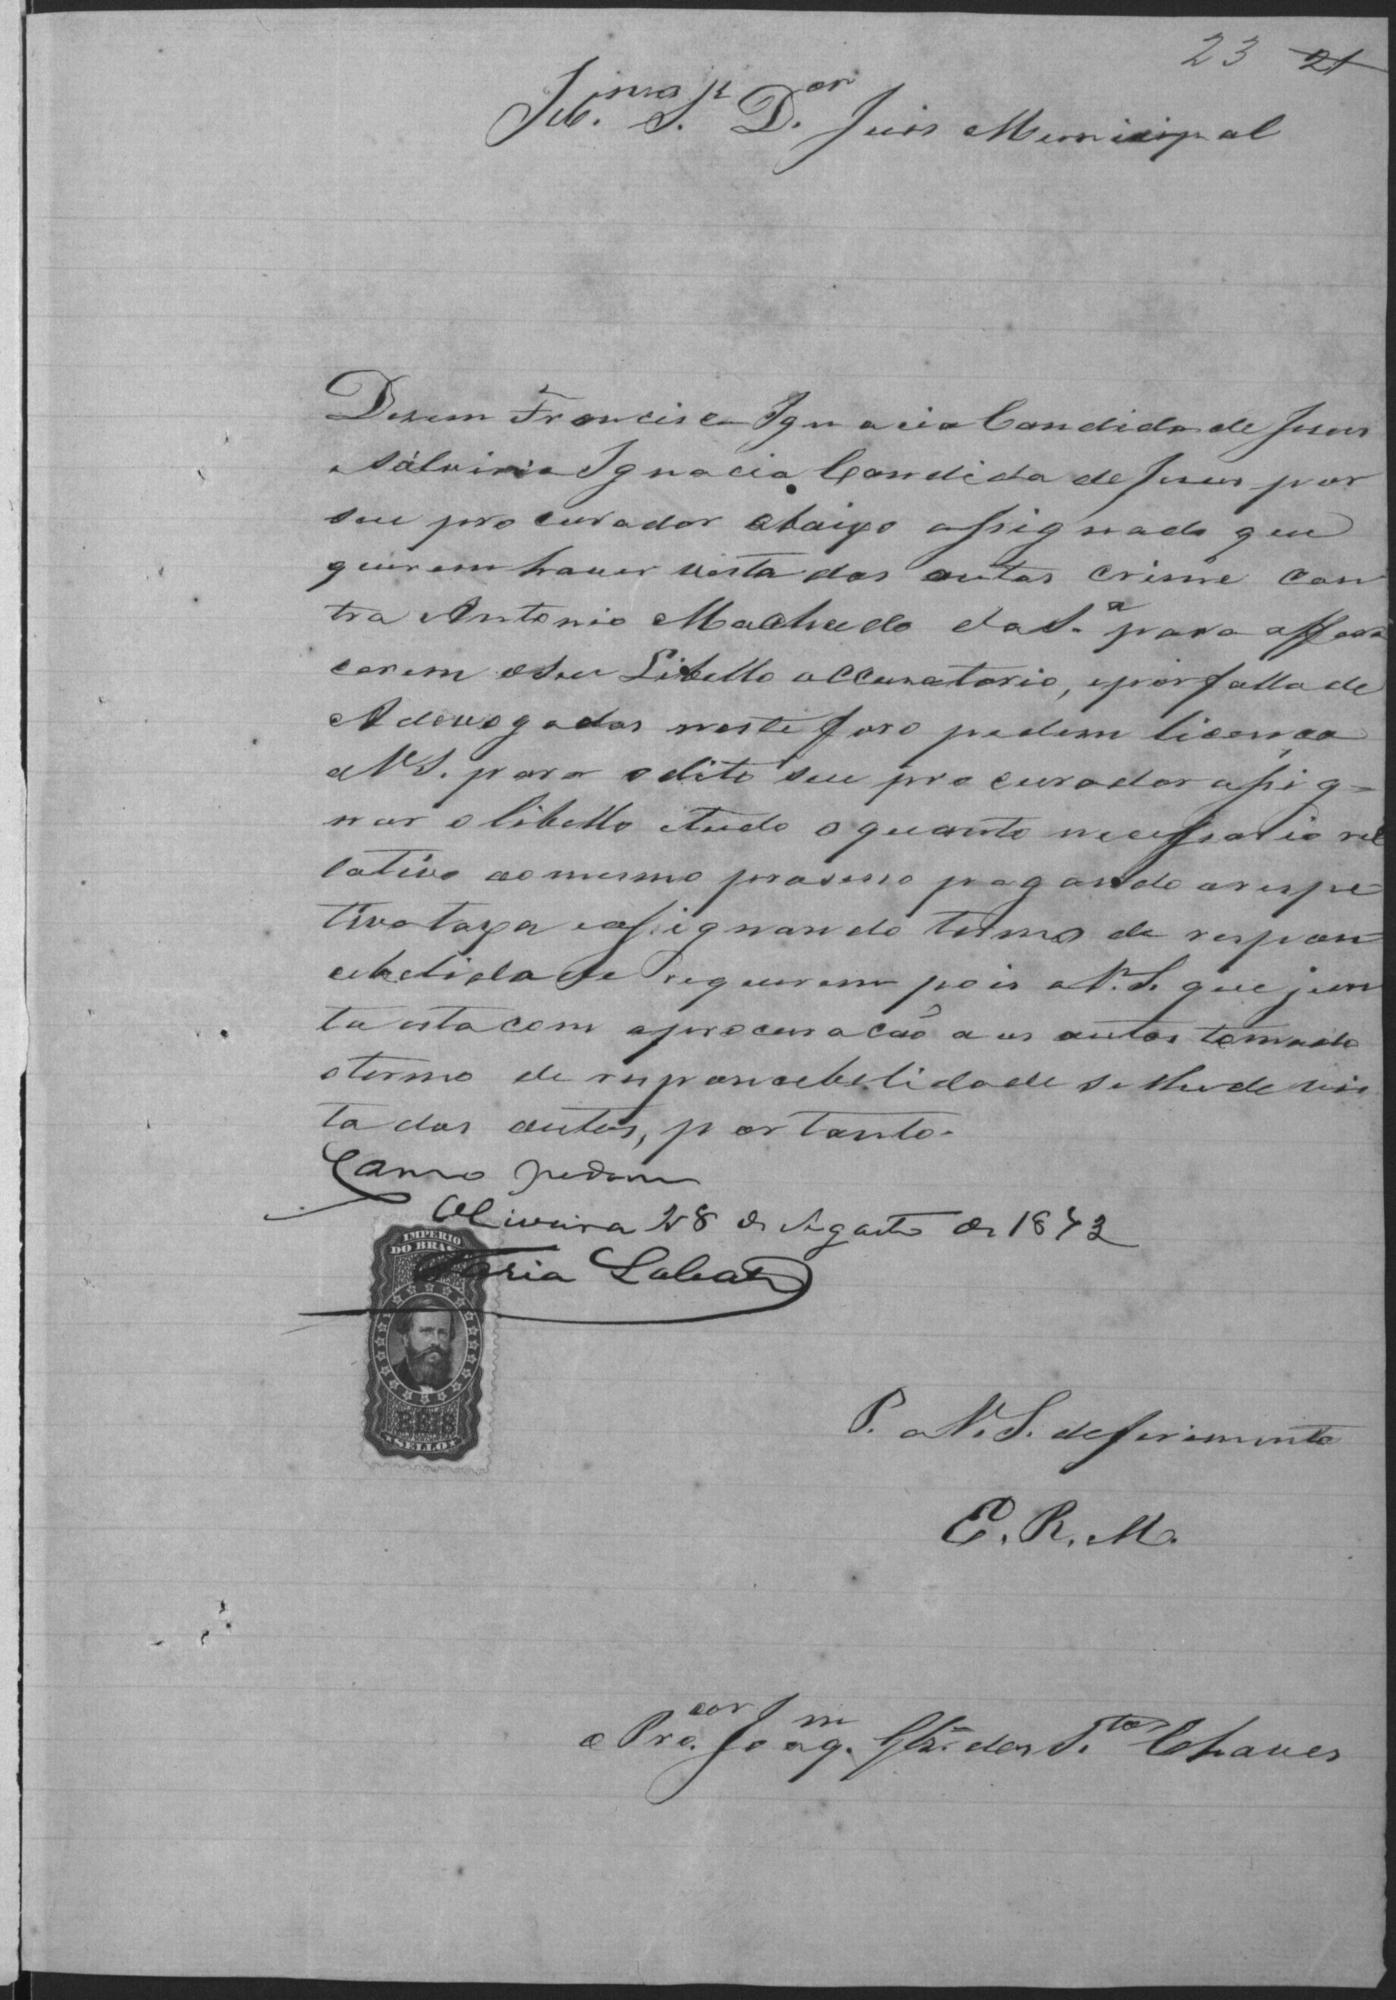 23 21
Ill.mo Sr. D.or Juis Municipal
Dizem Francisca Ignacia Candida de Jesus
e Salviria Ignacia Candida de Jesus por
seu procurador abaixo assignado que
querem haver vista dos autos crime con
tra Antonio Machado da S.a para offere
cerem o seu Libello accusatorio, e por falta de
Adevogados neste foro pedem licença
a V. S. para o dito seu procurador assig=
nar o libello e tudo o quanto necessario rel
lativo ao mesmo prosseso pagando a respe
tiva taxa e assignando termo de respon
cebelidade requerem pois a V. S. que jun
ta esta com a procuração aos autos tomado
o termo de responcebelidade se lhe de vis
ta dos autos, portanto.
Como pedem
Oliveira 28 de Agosto de 1873
Faria Lobato
IMPERIO
DO BRASIL
REIS
SELLO
P. a V. S. deferimento
E. R. M.
o Pro.cor Joaq.m Glz. dos S.tos Chaves